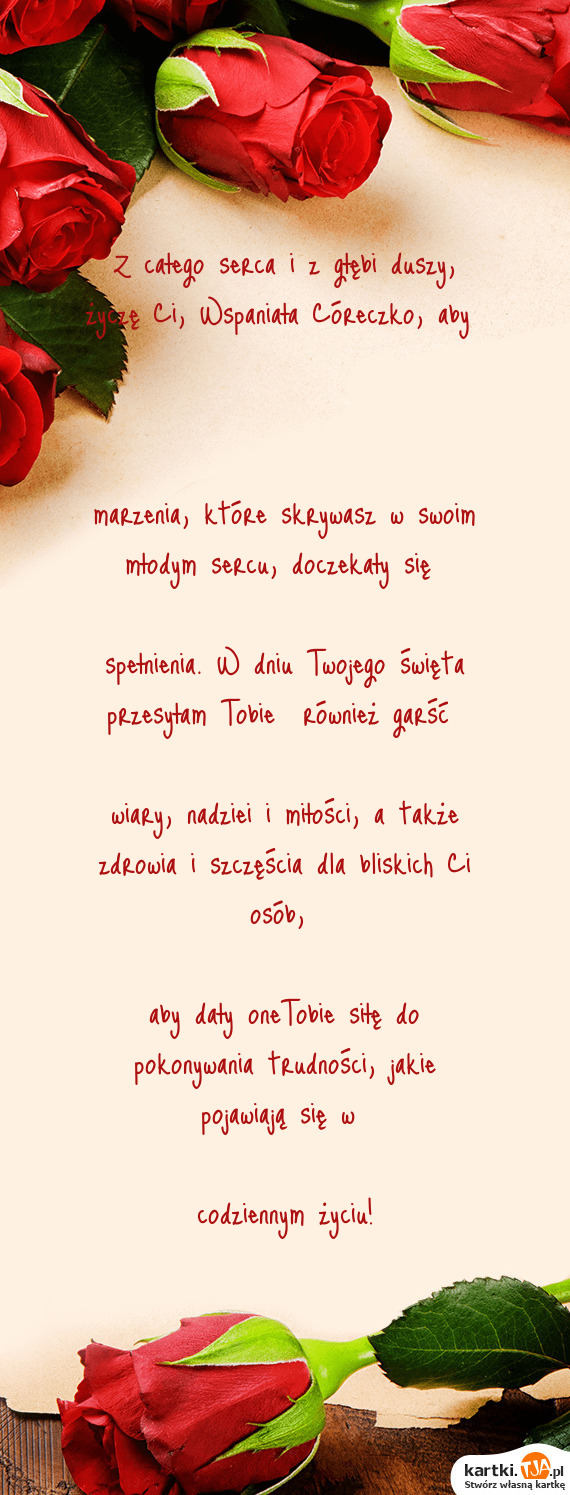 Z całego serca i z głębi duszy,
życzę Ci, Wspaniała Córeczko, aby
marzenia, które skrywasz w swoim
młodym sercu, doczekały się
spełnienia. W dniu Twojego święta
przesyłam Tobie również garść
wiary, nadziei i miłości, a także
zdrowia i szczęścia dla bliskich Ci
osób,
aby dały oneTobie siłę do
pokonywania trudności, jakie
pojawiają się w
codziennym życiu!
kartki.TJA.pl
Stwórz własną kartkę